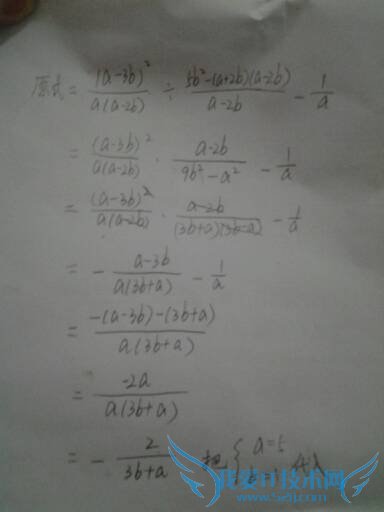 原式 = (a-3b)²/a(a-2b) ÷ 5b²-(a+2b)(a-2b)/a-2b - 1/a
= (a-3b)²/a(a-2b) · a-2b/9b²-a² - 1/a
= (a-3b)²/a(a-2b) · a-2b/(3b+a)(3b-a) - 1/a
= - a-3b/a(3b+a) - 1/a
= -(a-3b)-(3b+a)/a(3b+a)
= -2a/a(3b+a)
= - 2/3b+a 把 { a=5 代入
我爱IT技术网
www.52ij.com